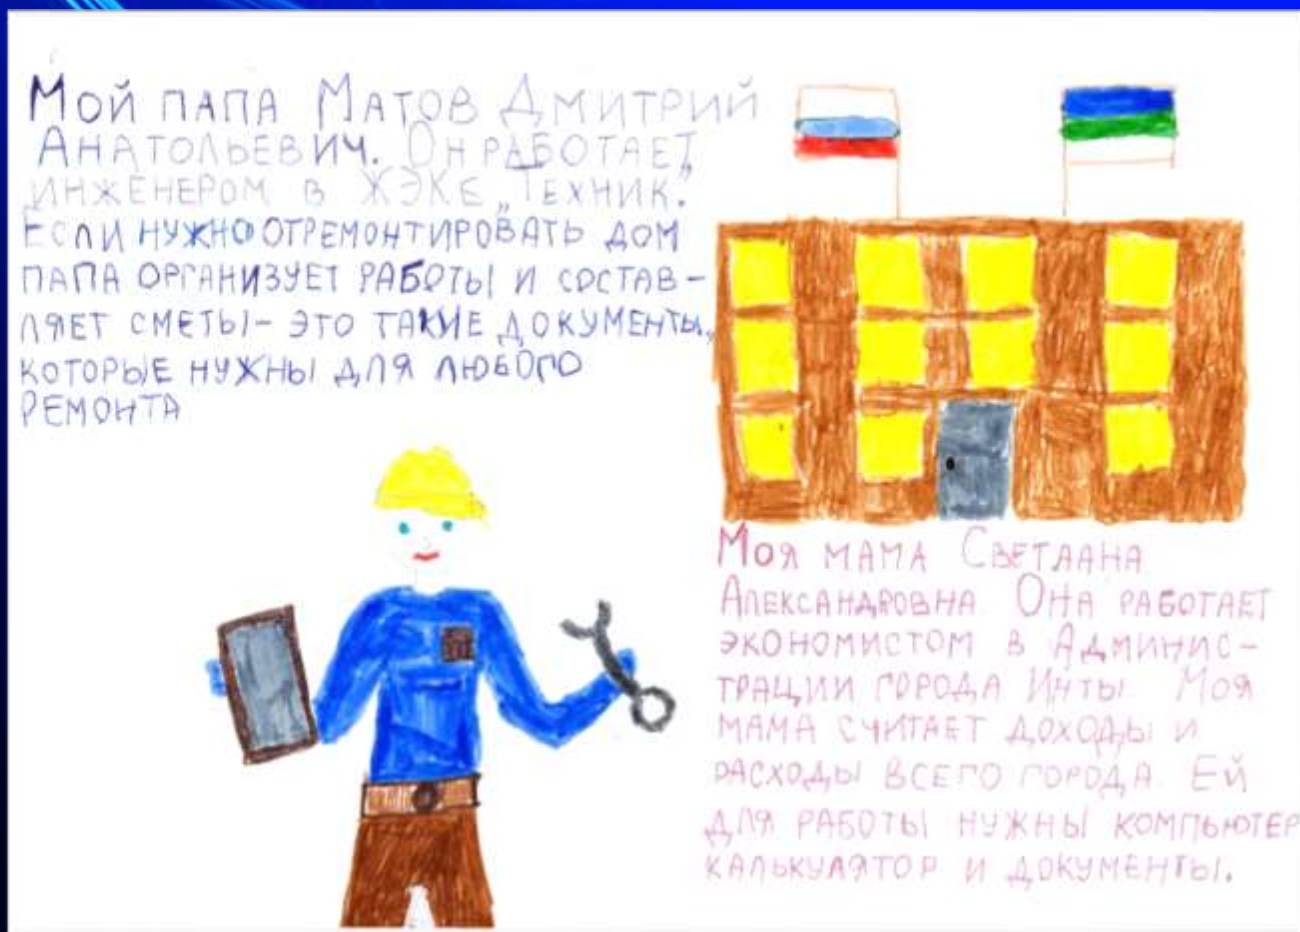 Мой папа Матов Дмитрий
Анатольевич. Он работает
инженером в ЖЭКе „Техник".
Если нужно отремонтировать дом
папа организует работы и состав-
ляет сметы- это такие документы,
которые нужны для любого
ремонта
Моя мама Светлана
Александровна. Она работает
экономистом в Админис-
трации города Инты. Моя
мама считает доходы и
расходы всего города. Ей
для работы нужны компьютер
калькулятор и документы.